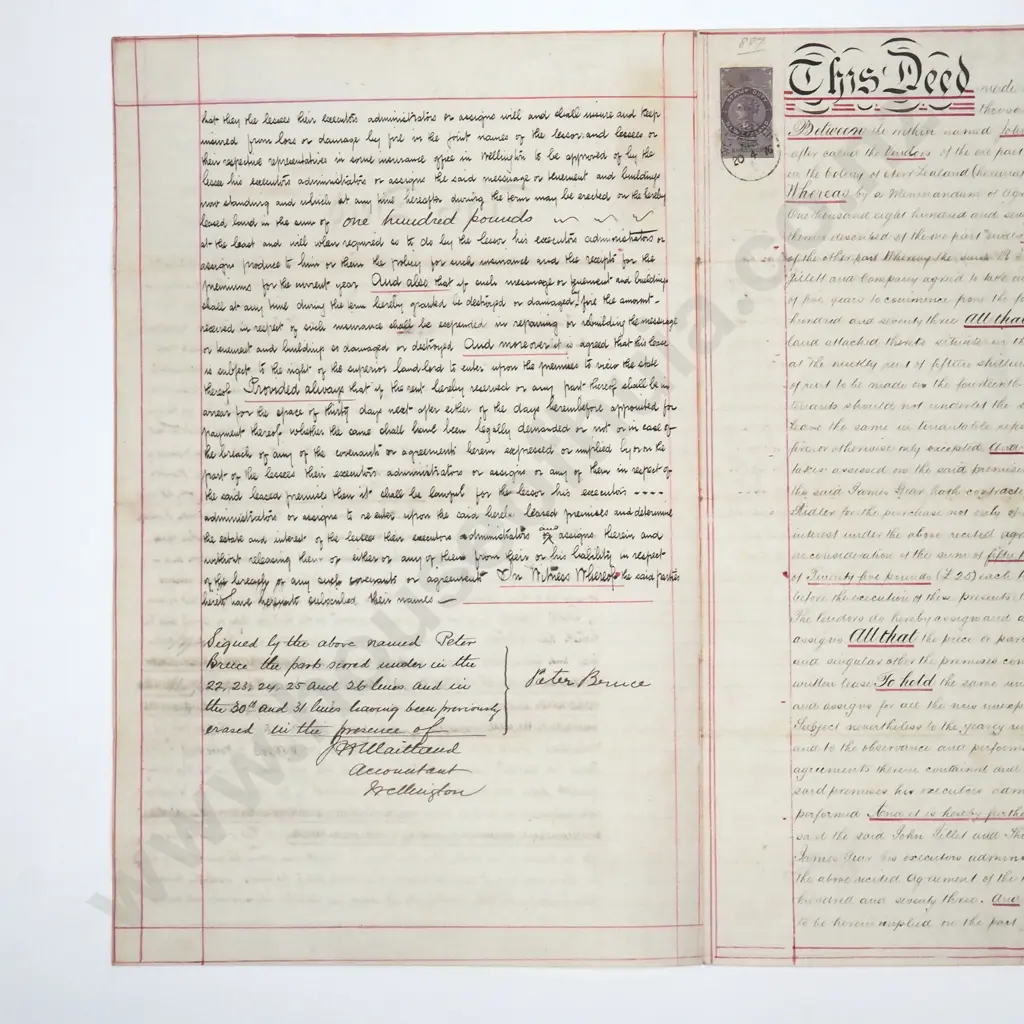 that they the lessees their executors administrators or assigns will and shall insure and keep
insured from loss or damage by fire in the joint names of the lessor and lessees or
their respective representatives in some insurance office in Wellington to be approved of by the
lessor his executors administrators or assigns the said messuage or tenement and buildings
now standing and which at any time hereafter during the term may be erected on the hereby
leased land in the sum of one hundred pounds
at the least and will when required so to do by the lessor his executors administrators or
assigns produce to him or them the policy for such insurance and the receipts for the
premiums for the current year And also that if such messuage or tenement and buildings
shall at any time during the term hereby granted be destroyed or damaged by fire the amount
received in respect of such insurance shall be expended in repairing or rebuilding the messuage
or tenement and buildings so damaged or destroyed And moreover it is agreed that this lease
is subject to the right of the superior landlord to enter upon the premises to view the state
thereof Provided always that if the rent hereby reserved or any part thereof shall be in
arrear for the space of thirty days next after either of the days hereinbefore appointed for
payment thereof whether the same shall have been legally demanded or not or in case of
the breach of any of the covenants or agreements herein expressed or implied by or on the
part of the lessees their executors administrators or assigns or any of them in respect of
the said leased premises then it shall be lawful for the lessor his executors ----
administrators or assigns to re enter upon the said hereby leased premises and determine
the estate and interest of the lessees their executors administrators and assigns therein and
without releasing them or either or any of them from their or his liability in respect
of the breach of any such covenants or agreements In Witness Whereof the said parties
hereto have hereunto subscribed their names
Signed by the above named Peter
Bruce the part scored under in the
22, 23, 24, 25 and 26 lines and in
the 30th and 31 lines having been previously
erased in the presence of
Peter Bruce
Maitland
Accountant
Wellington
807
STAMP DUTY
20 4 76
This Deed made
thousand
Between the within named
after called the Vendors of the one part
in the Colony of New Zealand
Whereas by a Memorandum of
One thousand eight hundred and
therein described of the one part
of the other part Whereby the said
Gillett and Company agreed to take
of five years to commence from the
hundred and seventy three All that
land attached thereto situate in the
at the weekly rent of fifteen
of rent to be made on the fourteenth
tenants should not underlet the
leave the same in tenantable
fire or otherwise only excepted And
taxes assessed on the said premises
the said James Gear hath contracted
for the purchase not only of
interest under the above recited
in consideration of the sum of fifty
of Twenty five pounds (£25) each
before the execution of these presents
The Vendors do hereby assign and
assigns All that the piece or
and singular other the premises
written lease To hold the same
and assigns for all the now
Subject nevertheless to the yearly
and to the observance and
agreements therein contained and
said premises his executors
performed And it is hereby further
said the said John Gillet and
James Gear his executors
the above recited Agreement of the
hundred and seventy three. And
to be herein implied on the part